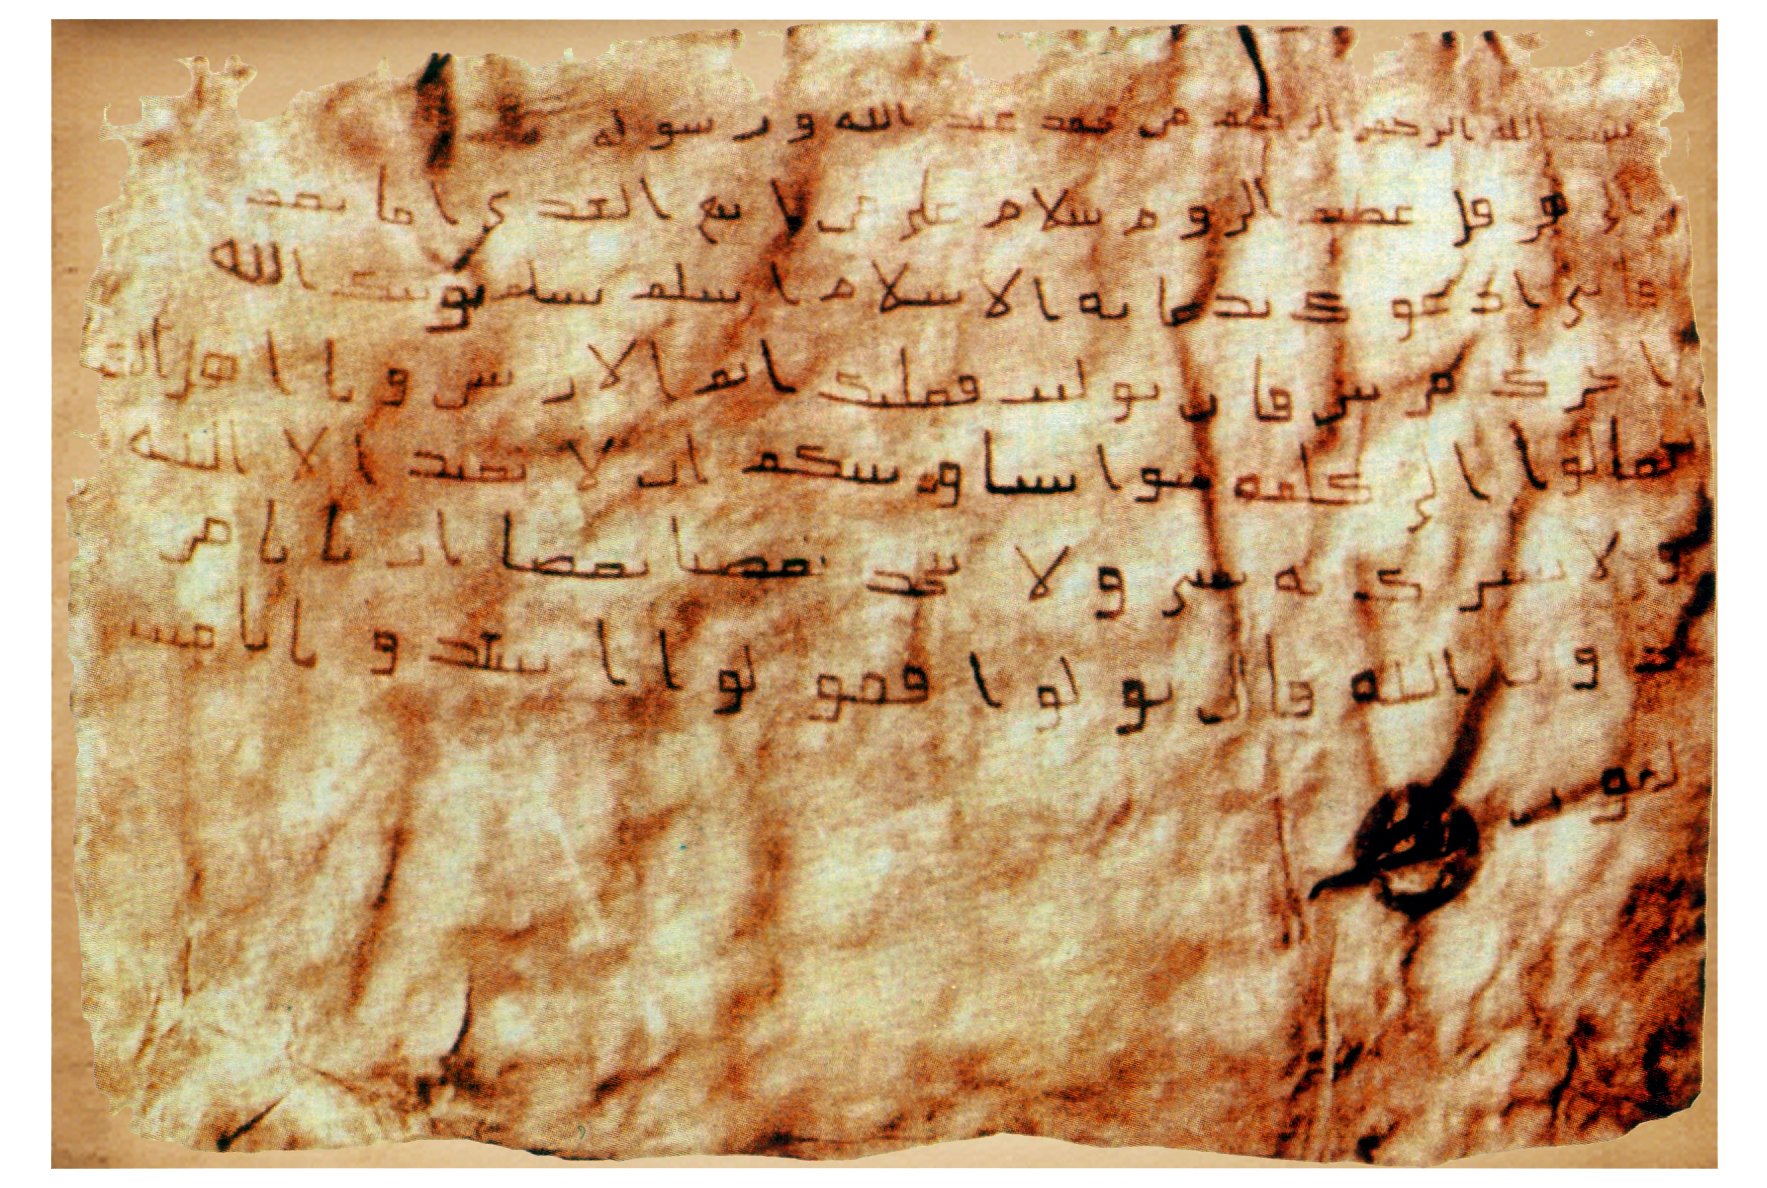 بسم الله الرحمن الرحيم من محمد عبد الله و رسوله
الى هرقل عظيم الروم سلام على من اتبع الهدى اما بعد
فانى ادعوك بدعايه الاسلام اسلم تسلم يوتك الله
اجرك مرتين فان توليت فعليك اثم الاريسين و يا اهل الكتب
تعالوا الى كلمه سوا بيننا و بينكم ان لا نعبد الا الله
و لا نشرك به شى و لا يتخذ بعضنا بعضا اربابا من
دون الله فان تولوا فقولوا اشهدوا بانا مسـ
لمون